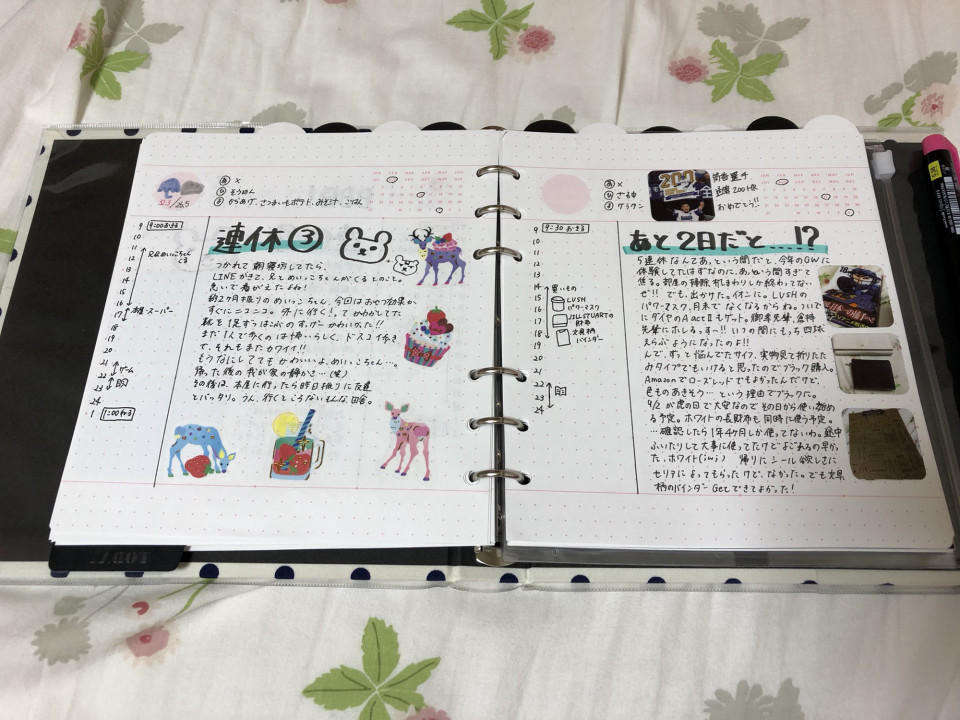 32.5/26.5
あ ×
ひ そうめん
よ からあげ、さつまいもポテト、みそ汁、ごはん
9 9:00おきる
10
11
12
13
14
15
16
17 本屋・スーパー
18
19
20
21
22 ゲーム
23
24
1 1:00ねる
連休③
つかれて朝寝坊してたら、
LINEがきて、兄とめいっこちゃんがくるとのこと。
急いで着がえたよね！
約2ヶ月振りのめいっこちゃん、今回はおやつ効果か、
すぐにニコニコ。外に行く！、て
靴を促すほどのすげーかわいかった!!
まだ1人で歩くのは怖いらしく、ドスコイ歩き
で、それもまたカワイイ!!
もうなにしてもかわいいよ、めいっこちゃん…。
帰った後の我が家の静かさ…(笑)
その後は、本屋に行ったら昨日振りに友達
とバッタリ。うん、行くところないもんな、田舎。
あ ×
ひ ざるそば
よ グラタン
200
筒香選手
通算200HR
おめでとう!!
9 9:30 おきる
10
11
12
13
14 買いもの
15 LUSH
16 パワーマスク
17 JILLSTUARTの財布
18 文具柄バインダー
19
20
21
22
23
24
あと2日だと…!?
5連休なんてあっという間だと、今年のGWに
体験してたはずなのに、あっという間すぎて
焦る。部屋の掃除、机まわりしか終わってない
ぜ!! でも、出かけた。イオンに。LUSHの
パワーマスク、月末でなくなるからね。ついで
にダイヤのA actⅡもゲット。御幸先輩、倉持
先輩にホレるぅー!! いつの間にもっち四球
えらぶようになったのよ!!
んで、ずっと悩んでたサイフ、実物見て折りたた
みタイプでもいけると思ったのでブラック購入。
Amazonでローズレッドでもよかったんだけど、
色ものあきそう…という理由でブラックに。
9/2が虎の日で大安なのでその日から使い始め
る予定。ホワイトの長財布も同時に使う予定。
…確認したら1年4ヶ月しか使ってないわ。途中
ふいたりして大事に使ってたけどよごれるの早かっ
た、ホワイト(；ω；) 帰りにシール欲しさに
セリアによってもらったけど、なかった。でも文具
柄のバインダーGetできてよかった！